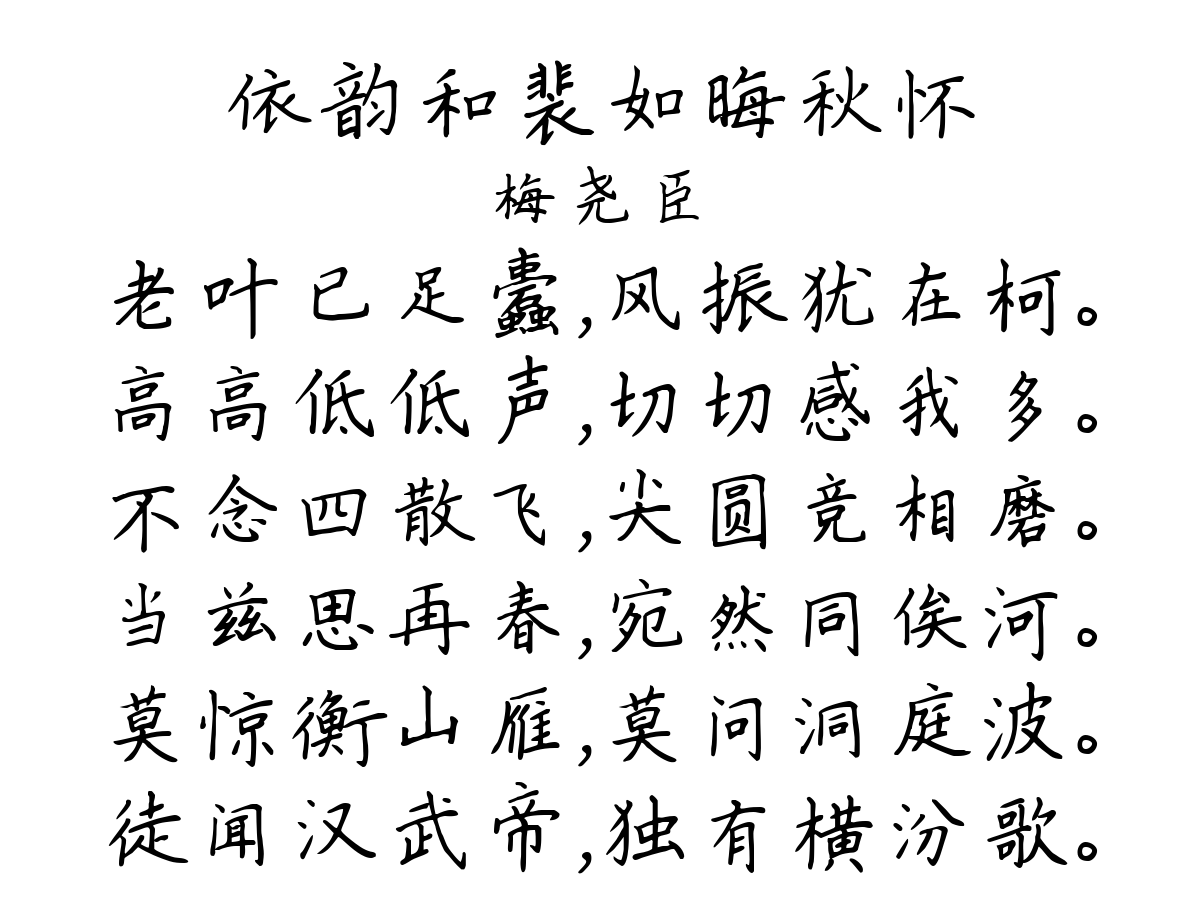 依韵和裴如晦秋怀
梅尧臣
老叶已足蠹,风振犹在柯。
高高低低声,切切感我多。
不念四散飞,尖圆竞相磨。
当兹思再春,宛然同俟河。
莫惊衡山雁,莫问洞庭波。
徒闻汉武帝,独有横汾歌。